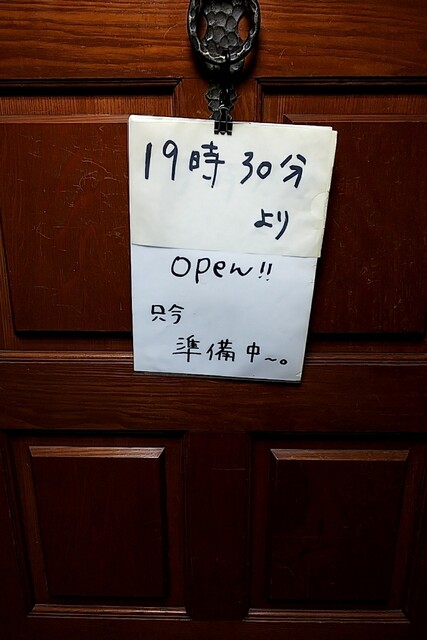 19時30分
より
open!!
只今
準備中～。